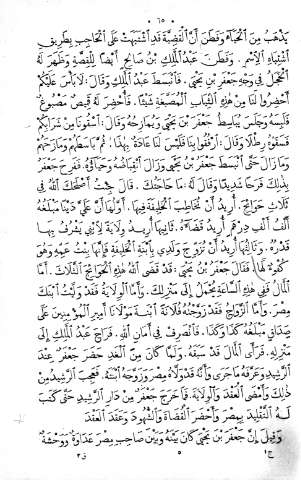 ٦٥
يذهب من الحياء وفطن أن القضية قد اشتبهت على الحاجب بطريق
اشتباه الاسم. وفطن عبد الملك بن صالح أيضًا للقصة وظهر له
الخجل في وجه جعفر بن يحيى. فانبسط عبد الملك وقال: لا بأس عليكم
أحضروا لنا من هذه الثياب المصبغة شيئًا. فأحضر له قميص مصبوغ
فلبسه وجلس يباسط جعفر بن يحيى ويمازحه وقال: اسقونا من شرابكم
فسقوه رطلًا وقال: ارفقوا بنا فليس لنا عادة بهذا. ثم باسطهم ومازحهم
وما زال حتى انبسط جعفر بن يحيى وزال انقباضه وحياؤه. ففرح جعفر
بذلك فرحًا شديدًا وقال له: ما حاجتك. قال: جئت أصلحك الله في
ثلاث حوائج أريد أن تخاطب الخليفة فيها. أولها أن علي دينًا مبلغه
ألف ألف درهم أريد قضاءه. ثانيها أريد ولاية لابني يشرف بها
قدره. وثالثها أريد أن تزوج ولدي بابنة الخليفة فإنها بنت عمه وهو
كفؤ لها. فقال جعفر بن يحيى: قد قضى الله هذه الحوائج الثلاث. أما
المال ففي هذه الساعة يحمل إلى منزلك. وأما الولاية فقد وليت ابنك
مصر. وأما الزواج فقد زوجته فلانة ابنة مولانا أمير المؤمنين على
صداق مبلغه كذا وكذا. فانصرف في أمان الله. فراح عبد الملك إلى
منزله فرأى المال قد سبقه. ولما كان من الغد حضر جعفر عند
الرشيد وعرفه ما جرى وأنه قد ولاه مصر وزوجه ابنته. فعجب الرشيد من
ذلك وأمضى العقد والولاية. فما خرج جعفر من دار الرشيد حتى كتب
له التقليد بمصر وأحضر القضاة والشهود وعقد العقد
وقيل إن جعفر بن يحيى كان بينه وبين صاحب مصر عداوة ووحشة
ج ١ ٥ ق ٢